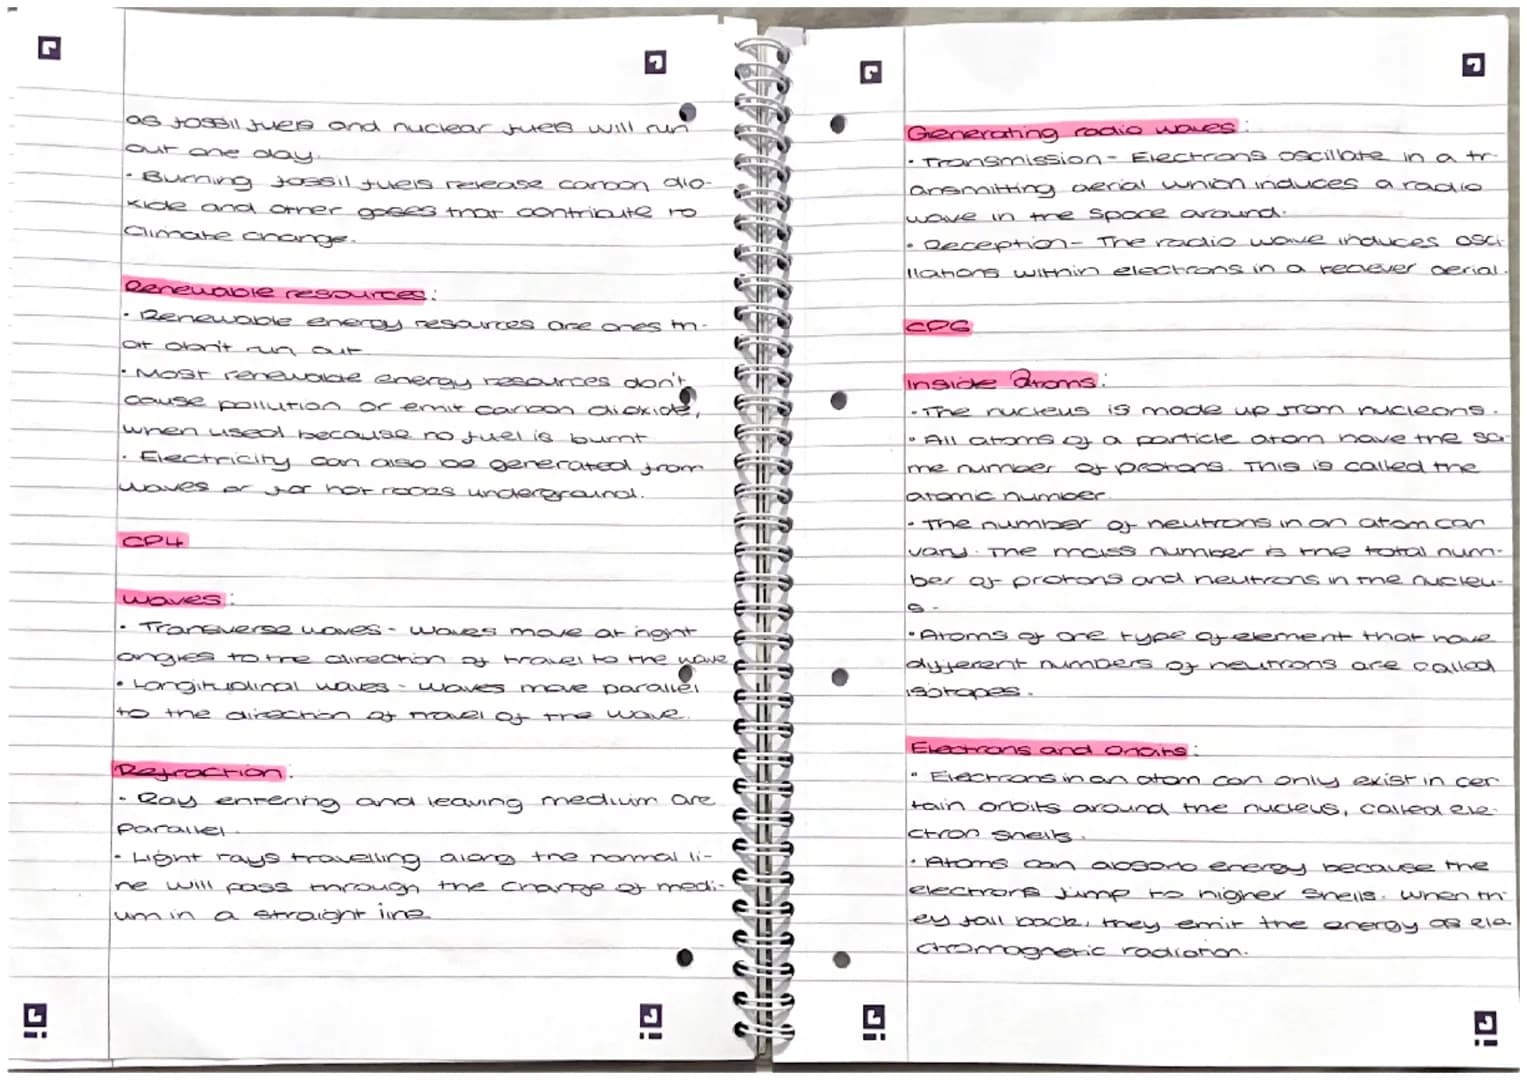 as fossil fuels and nuclear fuels will run
out one day.
· Burning fossil fuels release carbon dio-
xide and other gases that contribute to
climate change.
Renewable resources:
· Renewable energy resources are ones th-
at don't run out
· Most renewable energy resources don't
cause pollution or emit carbon dioxide,
when used because no fuel is burnt
· Electricity can also be generated from
waves or for hot rocks underground.
CP4
Waves:
· Transverse waves - waves move at right
angles to the direction of travel to the wave
· Longitudinal waves - waves move parallel
to the direction of travel of the wave.
Refraction:
· Ray entering and leaving medium are
parallel.
· Light rays travelling along the normal li-
ne will pass through the change of medi-
um in a straight line
Generating radio waves:
· Transmission - Electrons oscillate in a tr-
ansmitting aerial which induces a radio
wave in the space around.
· Reception - The radio wave induces osci-
llations within electrons in a reciever aerial.
CP6
Inside Atoms:
· The nucleus is made up from nucleons.
· All atoms of a particle atom have the sa-
me number of protons. This is called the
atomic number.
· The number of neutrons in an atom can
vary. The mass number is the total num-
ber of protons and neutrons in the nucleu-
s.
· Atoms of one type of element that have
different numbers of neutrons are called
isotopes.
Electrons and orbits:
· Electrons in an atom can only exist in cer
tain orbits around the nucleus, called ele-
ctron shells.
· Atoms can absorb energy because the
electrons jump to higher shells. When th-
ey fall back, they emit the energy as ele
ctromagnetic radiation.